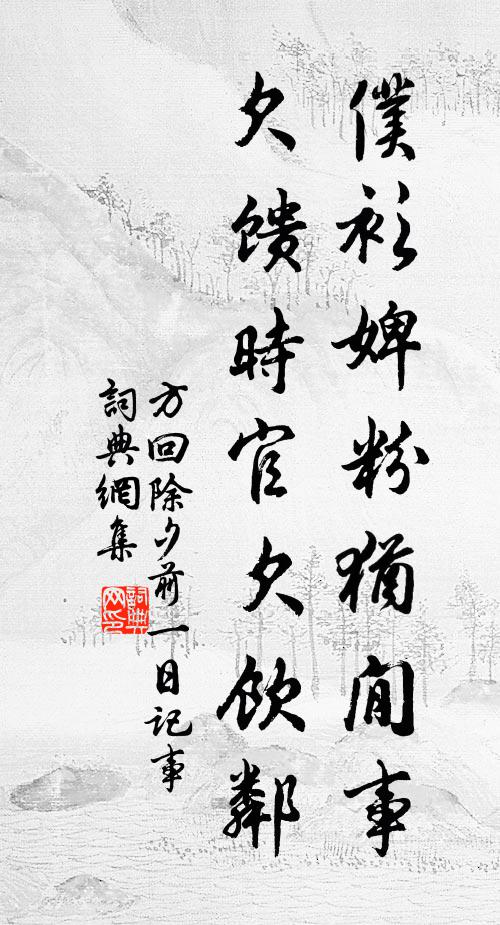 僕衫婢粉猶閒事
欠馈時官欠飲鄰
方回除夕前一日記事
詞典網集
詞典网印